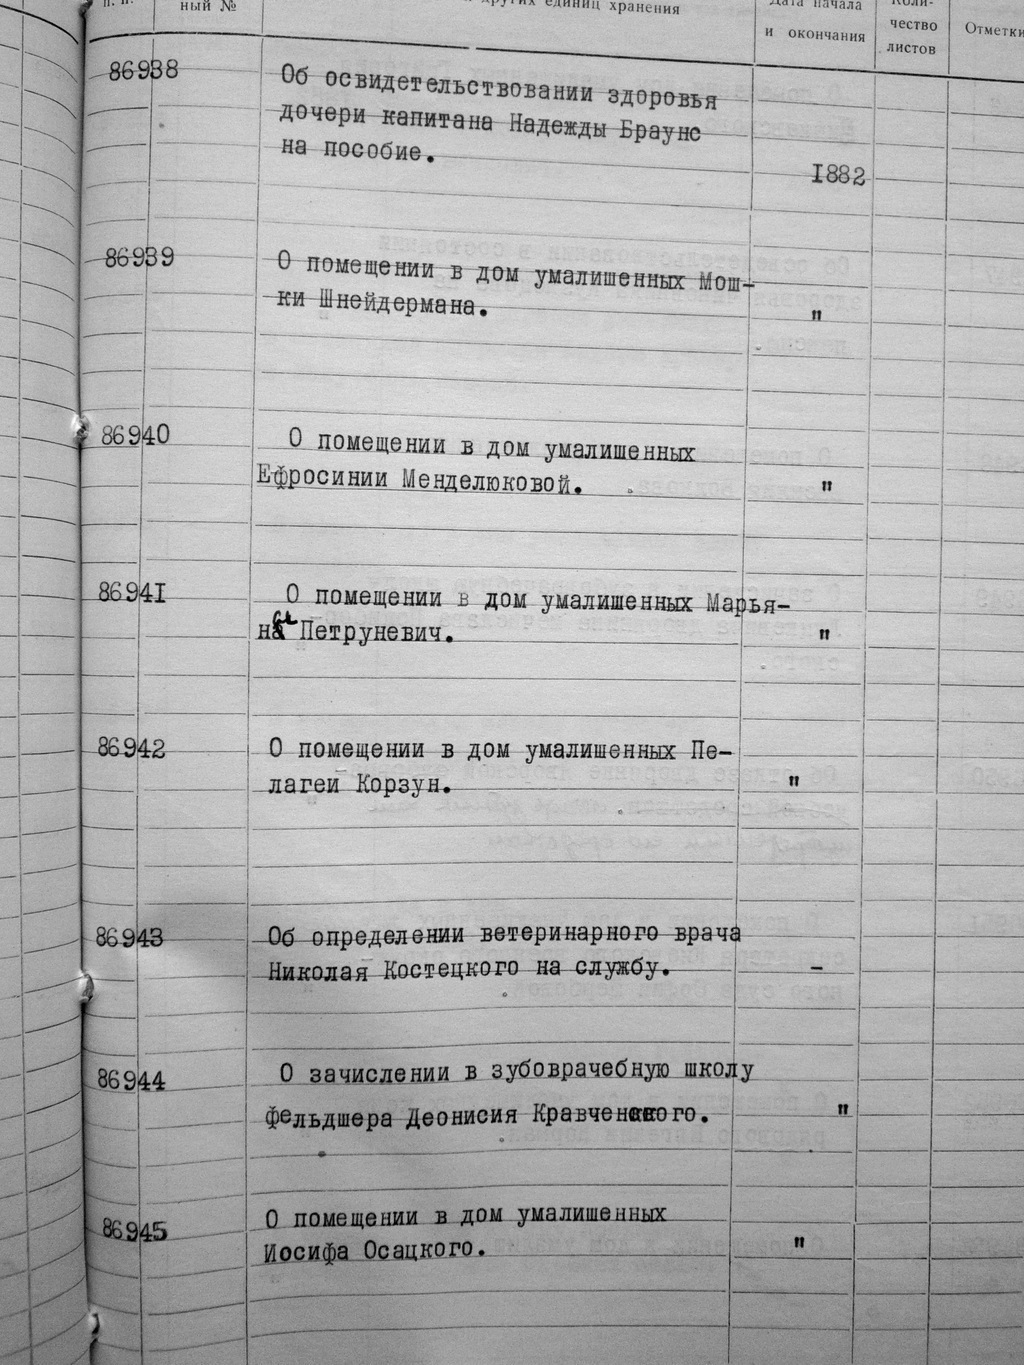 п. п.
ный №
и других единиц хранения
Дата начала
и окончания
Коли-
чество
листов
Отметки
86938
Об освидетельствовании здоровья
дочери капитана Надежды Браунс
на пособие.
1882
86939
О помещении в дом умалишенных Мош-
ки Шнейдермана.
"
86940
О помещении в дом умалишенных
Ефросинии Менделюковой.
"
86941
О помещении в дом умалишенных Марья-
ны Петруневич.
"
86942
О помещении в дом умалишенных Пе-
лагеи Корзун.
"
86943
Об определении ветеринарного врача
Николая Костецкого на службу.
-
86944
О зачислении в зубоврачебную школу
фельдшера Деонисия Кравченского.
"
86945
О помещении в дом умалишенных
Иосифа Осацкого.
"